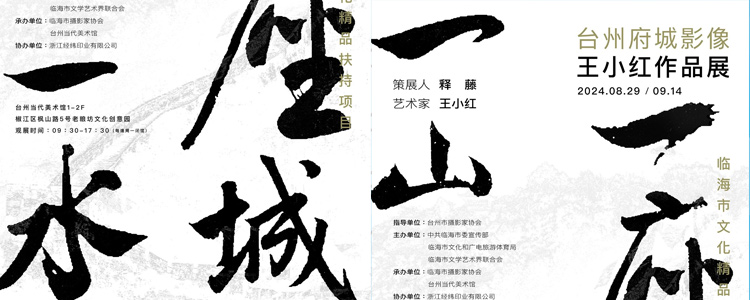 临海市文学艺术界联合会
承办单位：临海市摄影家协会
台州当代美术馆
协办单位：浙江经纬印业有限公司
台州当代美术馆1-2F
椒江区枫山路5号老粮坊文化创意园
观展时间：09：30-17：30（每周周一闭馆）
一水
座城
化精品扶持项目
一山
策展人 释 藤
艺术家 王小红
台州府城影像
王小红作品展
2024.08.29 / 09.14
一府
临海市文化精品
指导单位：台州市摄影家协会
主办单位：中共临海市委宣传部
临海市文化和广电旅游体育局
临海市文学艺术界联合会
承办单位：临海市摄影家协会
台州当代美术馆
协办单位：浙江经纬印业有限公司